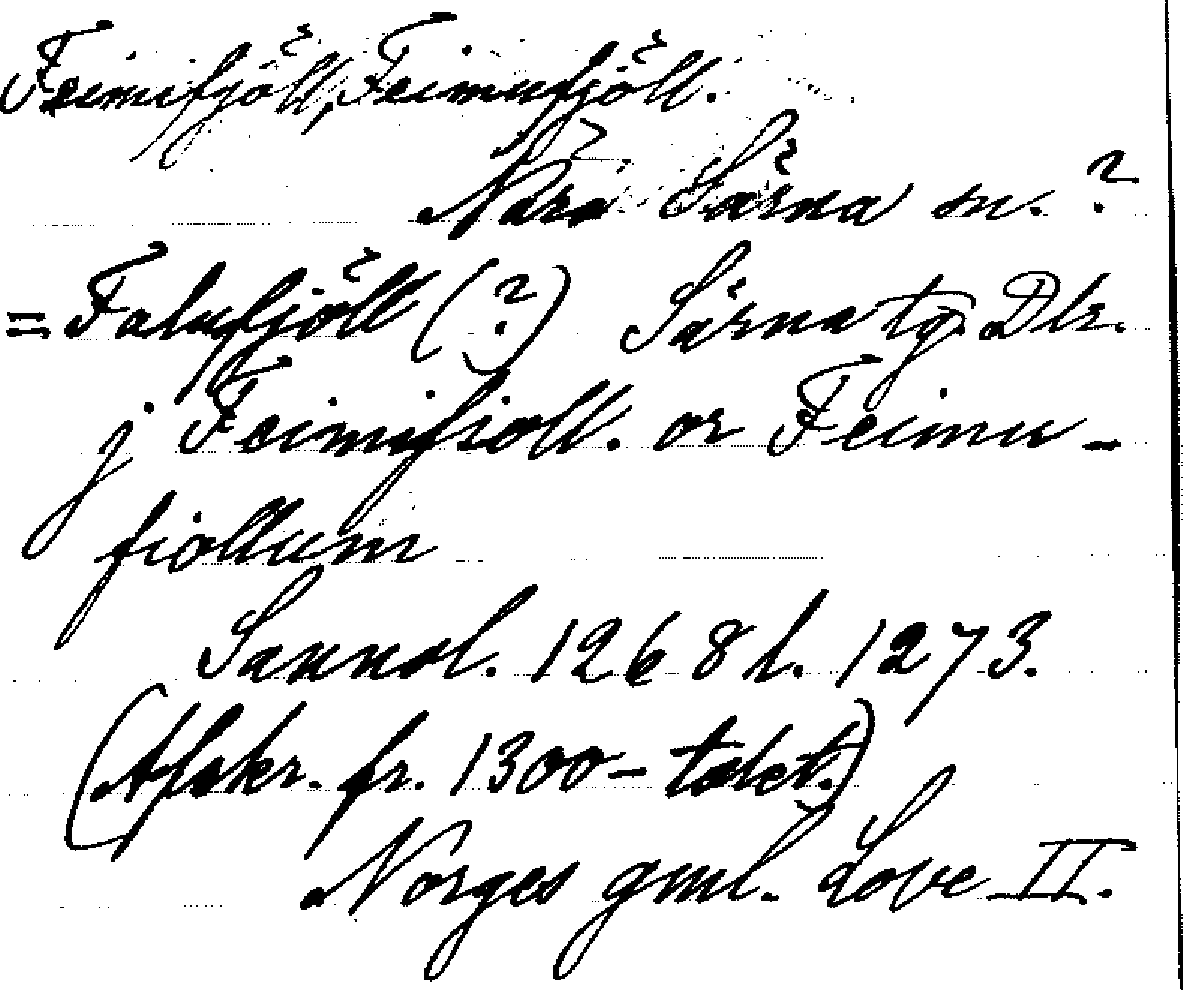 Feimifjöll, Feimufjöll.
Nära Särna sn. ?
= Falufjöll (?) Särna tg. Dlr.
j Feimifioll. or Feimu-
fiollum
Sannol. 1268 l. 1273.
(Afskr. fr. 1300-talet.)
Norges gml. Love II.